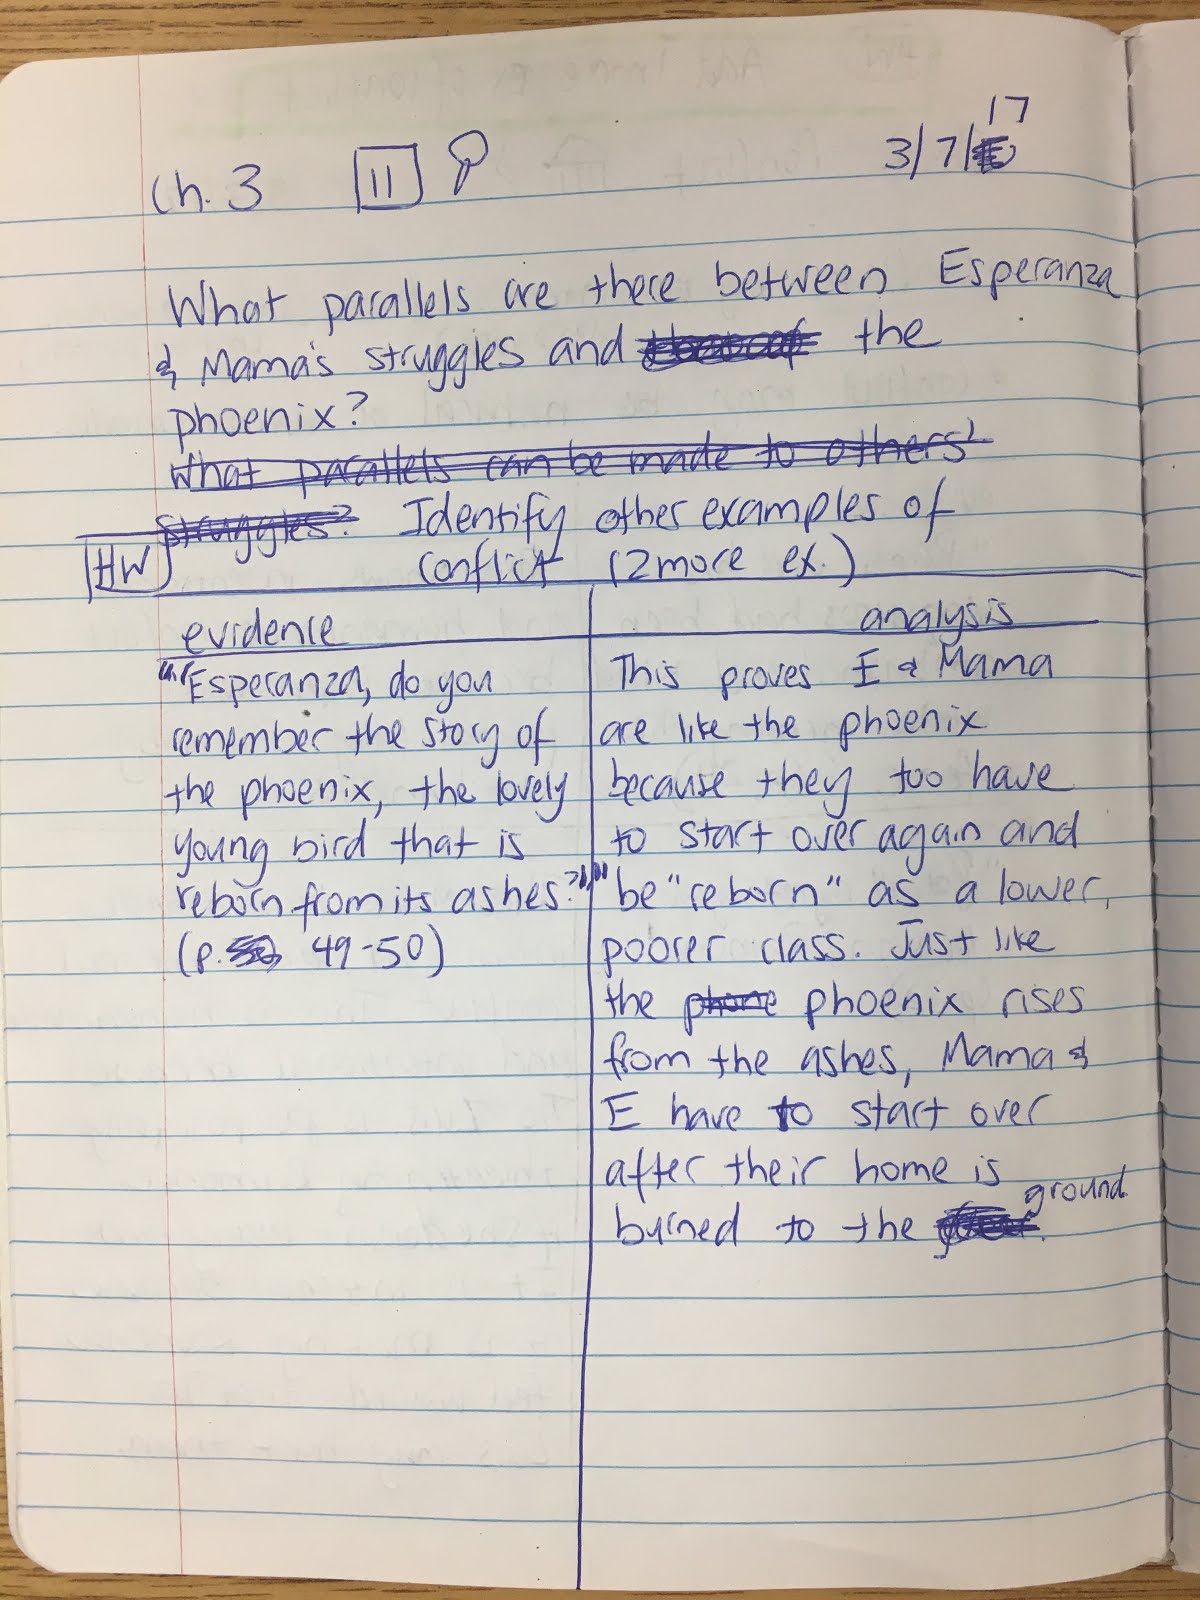 Ch. 3 11 3/7/17
What parallels are there between Esperanza
& Mama's struggles and the
phoenix?
What parallels can be made to others'
struggles? Identify other examples of
HW conflict (2 more ex.)
evidence
"'Esperanza, do you
remember the story of
the phoenix, the lovely
young bird that is
reborn from its ashes?'"
(p. 49-50)
analysis
This proves E & Mama
are like the phoenix
because they too have
to start over again and
be "reborn" as a lower,
poorer class. Just like
the phone phoenix rises
from the ashes, Mama &
E have to start over
after their home is
burned to the ground.